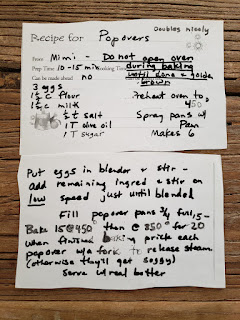 Doubles nicely
Recipe for Popovers
From Mimi - Do not open oven
Prep Time 10-15 min Cooking Time during baking
until done & golden
Can be made ahead no brown
3 eggs
1½ c flour Preheat oven to
1½ c milk 450
½ t salt Spray pans w/
1 T olive oil Pam
1 T sugar Makes 6
Put eggs in blender & stir -
add remaining ingred & stir on
low speed just until blended
Fill popover pans ¾ full,
Bake 15 @ 450 then @ 350° for 20
when finished baking prick each
popover w/a fork to release steam.
(otherwise they'll get soggy)
Serve w/real butter